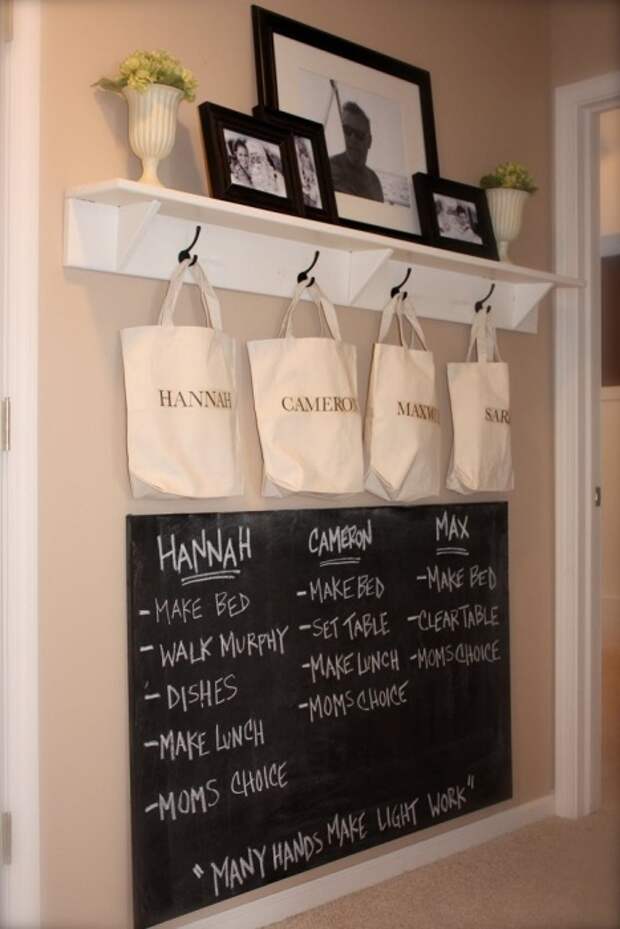 HANNAH
CAMERON
MAXW
SAR
HANNAH
- MAKE BED
- WALK MURPHY
- DISHES
- MAKE LUNCH
- MOMS CHOICE
CAMERON
- MAKE BED
- SET TABLE
- MAKE LUNCH
- MOMS CHOICE
MAX
- MAKE BED
- CLEAR TABLE
- MOMS CHOICE
"MANY HANDS MAKE LIGHT WORK"